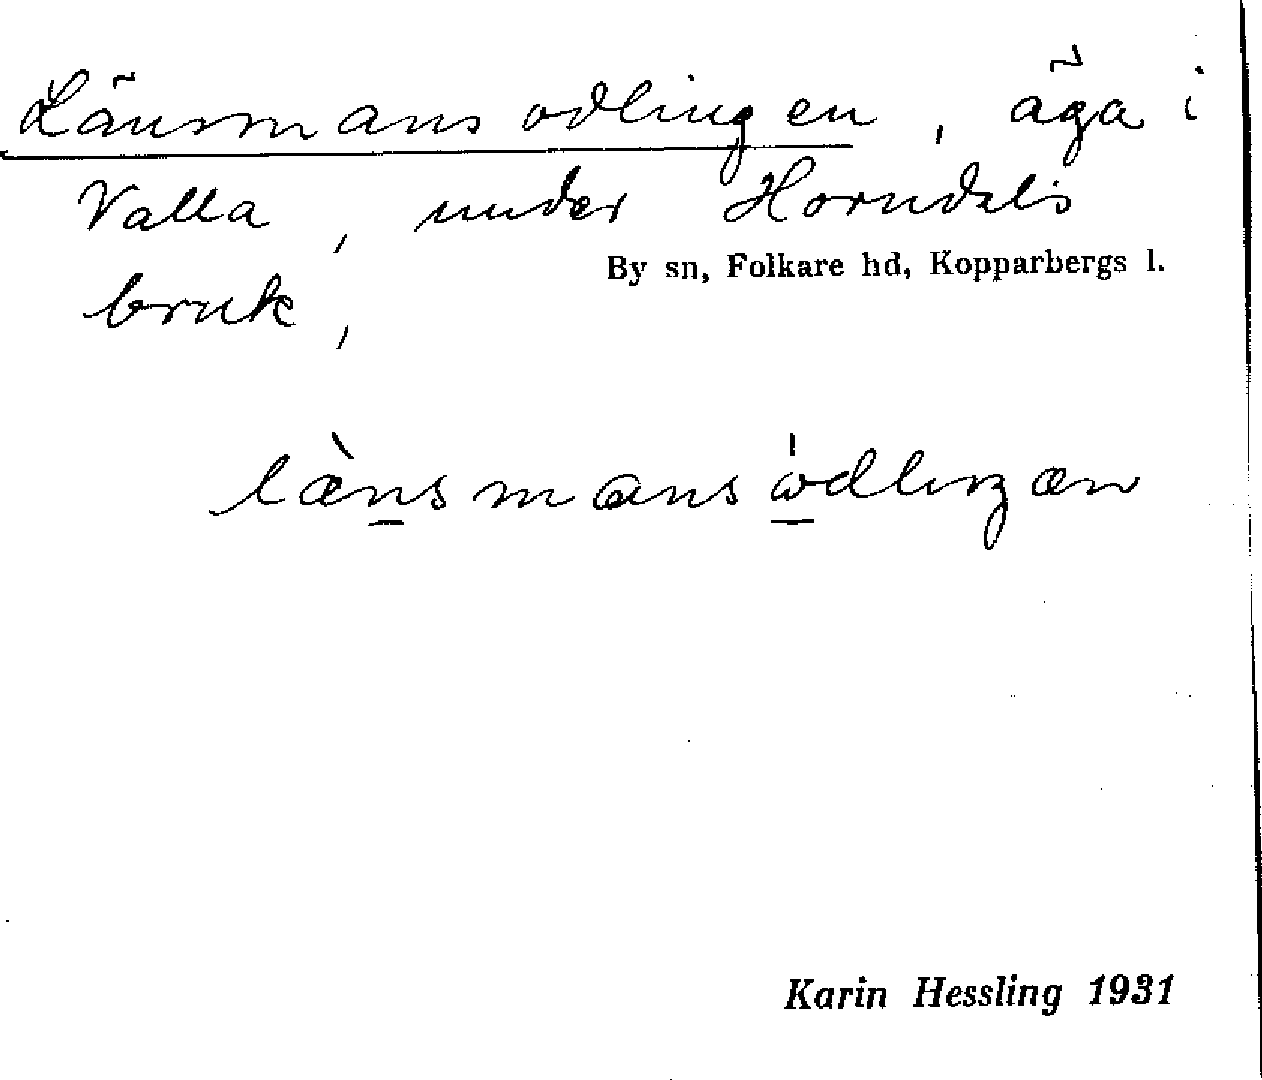 Länsmansodlingen, äga i
Valla, under Horndals
By sn, Folkare hd, Kopparbergs l.
bruk,
lænsmansωdlıŋæn
Karin Hessling 1931